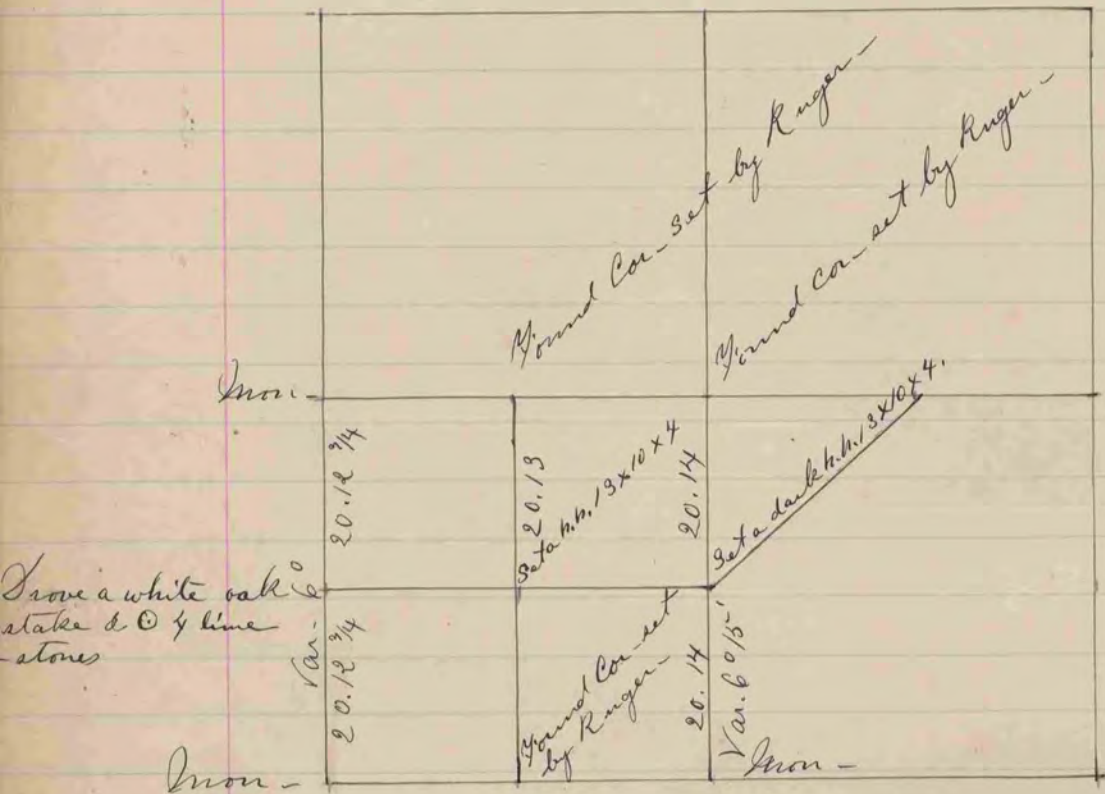 Found Cor - Set by Ruger -
Found Cor - set by Ruger -
Mon -
20.12 3/4
20.13
Set a h.h. 13 x 10 x 4
20.14
Set a dark h.h. 13 x 10 x 4.
Drove a white oak
stake & ⊙ 4 lime
- stones
Var. 6°
20.12 3/4
Found Cor - set
by Ruger -
20.14
Var. 6° 15'
Mon -
Mon -